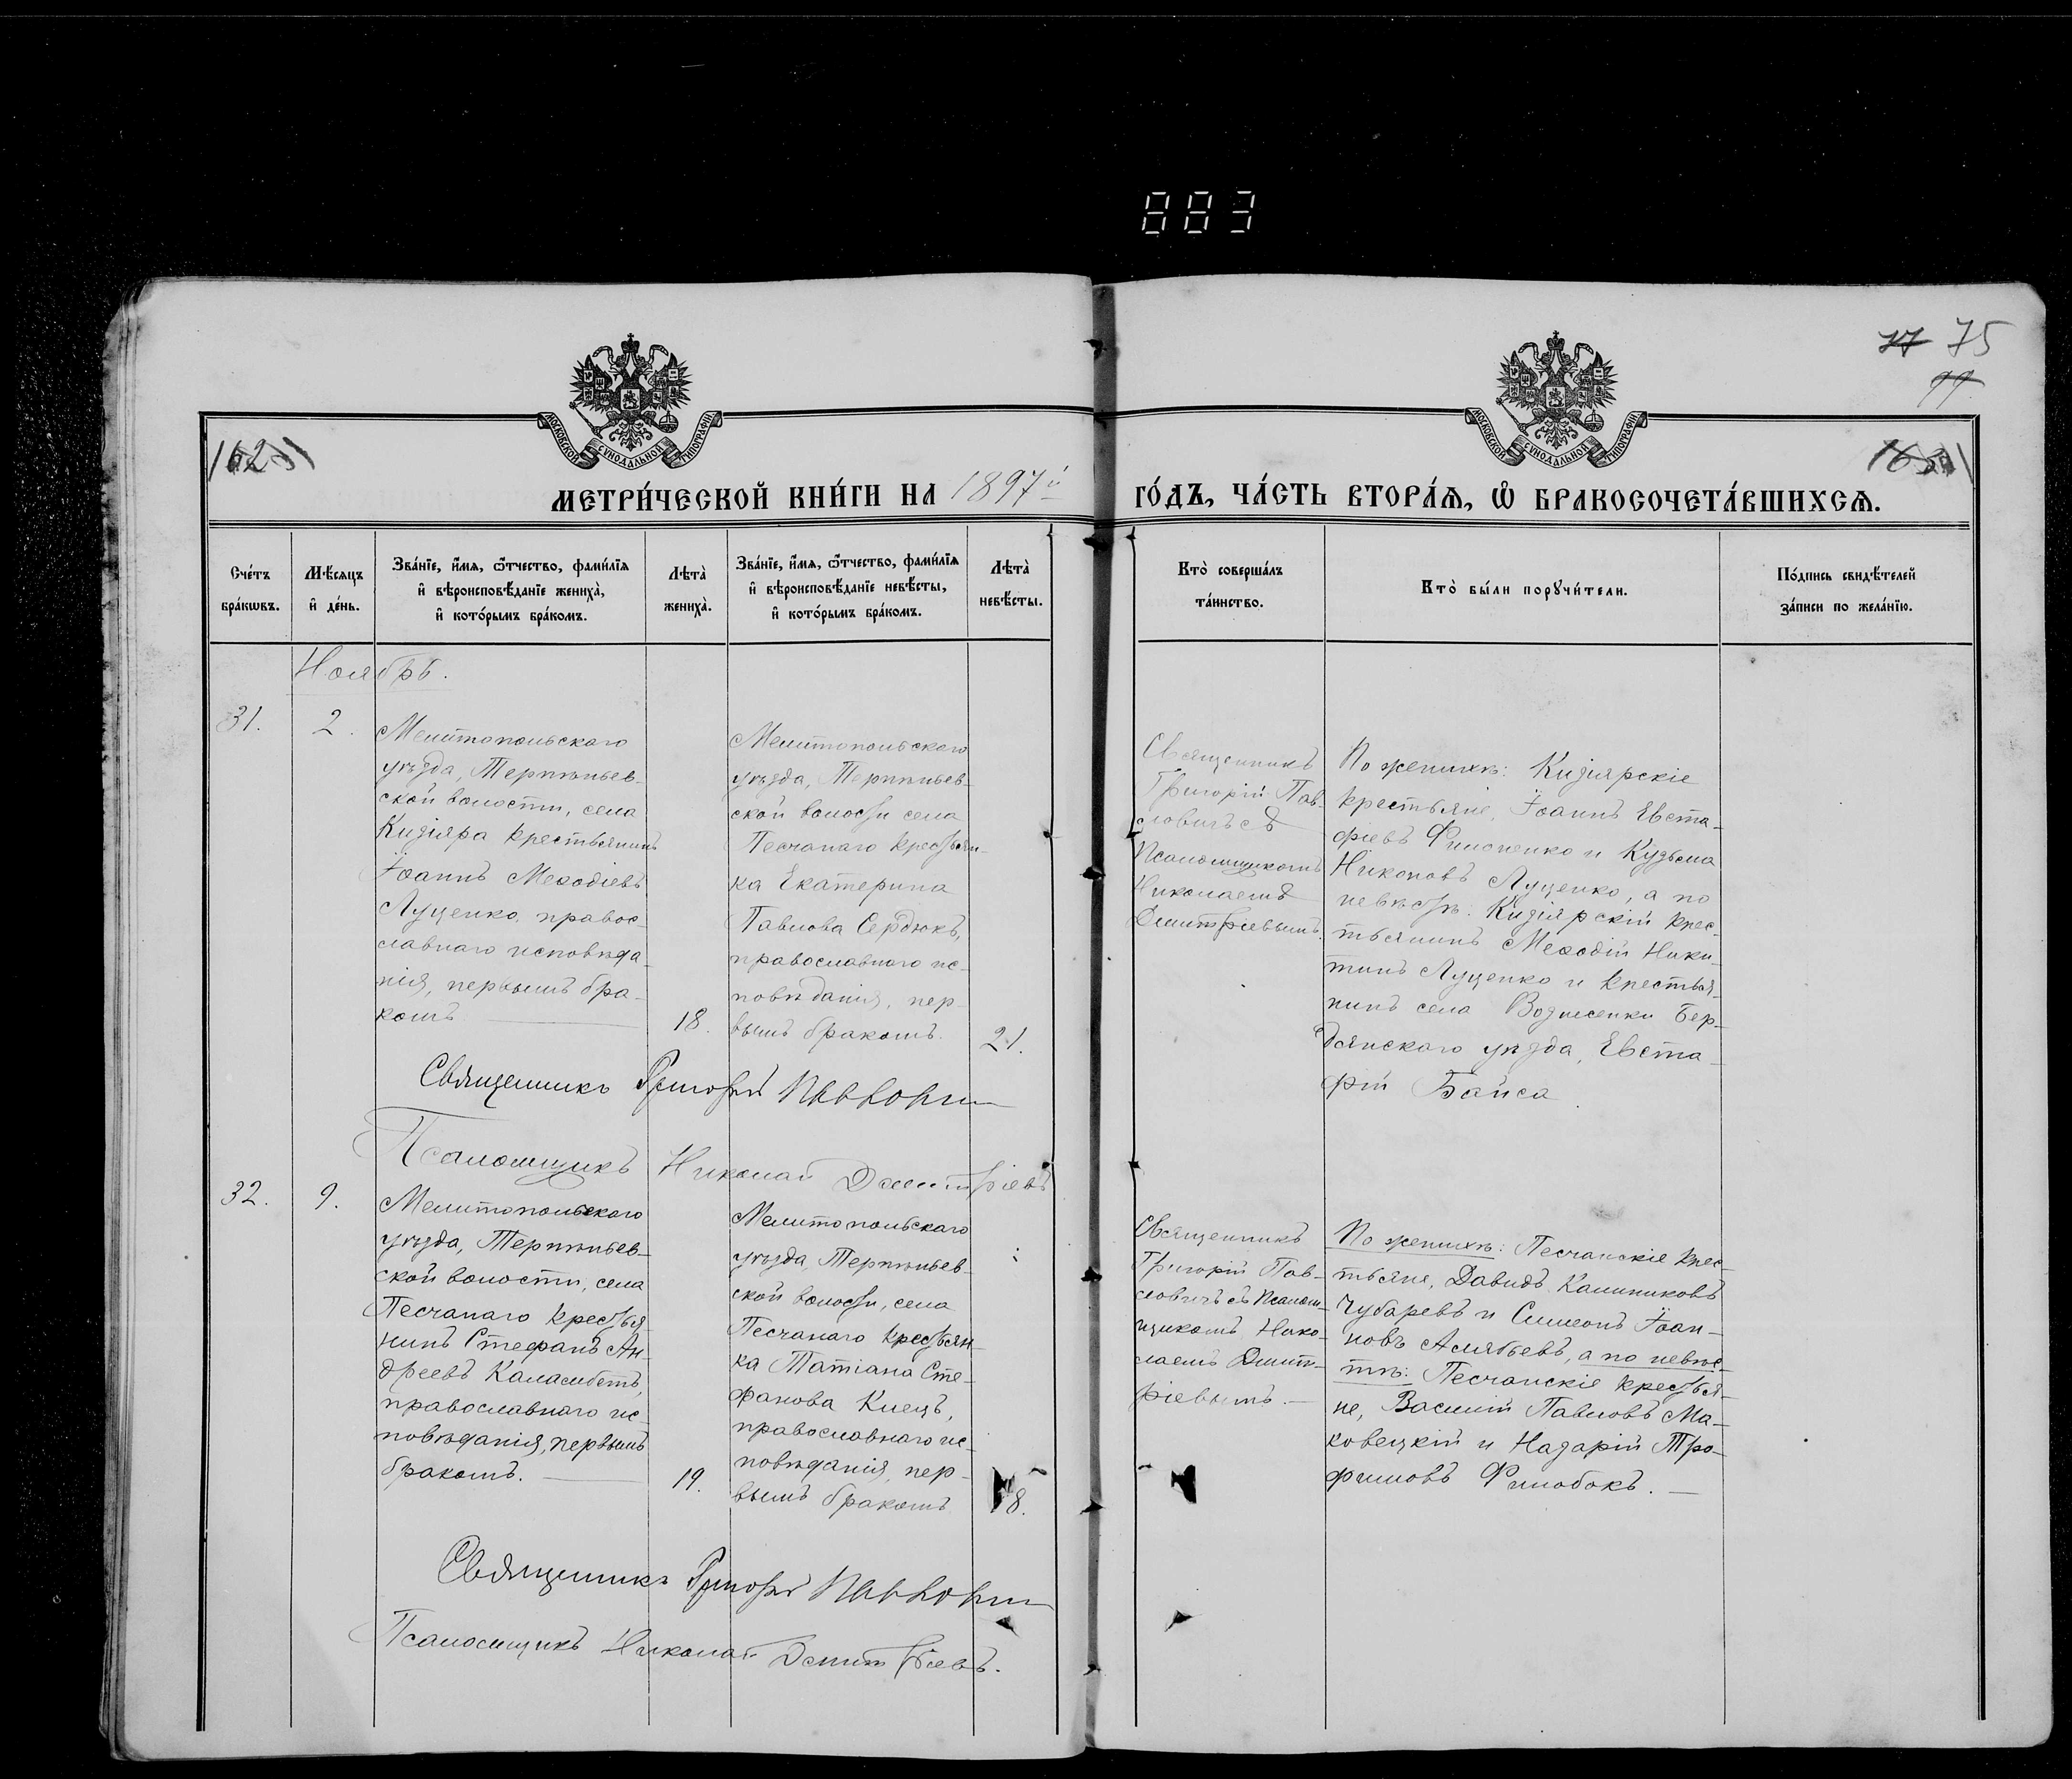 883
75
МОСКОВСКОЙ СѴНОДАЛЬНОЙ ТИПОГРАФІИ
МОСКОВСКОЙ СѴНОДАЛЬНОЙ ТИПОГРАФІИ
МЕТРИ́ЧЕСКОЙ КНИ́ГИ НА 1897й ГО́ДЪ, ЧА́СТЬ ВТОРА́Ѧ, Ѽ БРАКОСОЧЕТА́ВШИХСѦ.
Сче́тъ
бра́кѡвъ.
Мѣ́сѧцъ
и҆ де́нь.
Зва́нїе, и҆́мѧ, ѻ҆́тчество, фами́лїѧ
и҆ вѣроисповѣ́данїе жениха̀,
и҆ кото́рымъ бра́комъ.
Лѣта̀
жениха̀.
Зва́нїе, и҆́мѧ, ѻ҆́тчество, фами́лїѧ
и҆ вѣроисповѣ́данїе невѣ́сты,
и҆ кото́рымъ бра́комъ.
Лѣта̀
невѣ́сты.
Кто̀ соверша́лъ
та́инство.
Кто̀ бы́ли порꙋчи́тели.
По́дпись свидѣ́телей
за́писи по жела́нїю.
Ноябрь.
31.
2.
Мелитопольскаго
уѣзда, Терпѣньев-
ской волости, села
Кизіяра крестьянинъ
Іоаннъ Меѳодіевъ
Луценко, правос-
лавнаго исповѣда-
нія, первымъ бра-
комъ
18.
Мелитопольскаго
уѣзда, Терпѣньев-
ской волости села
Песчанаго крестьян-
ка Екатерина
Павлова Сердюкъ,
православнаго ис-
повѣданія, пер-
вымъ бракомъ.
21.
Священникъ
Григорій Пав-
ловичъ съ
Псаломщикомъ
Николаемъ
Дмитріевымъ.
По женихѣ: Кизіярскіе
крестьяне, Іоаннъ Евста-
фіевъ Филоненко и Кузьма
Никоновъ Луценко, а по
невѣстѣ: Кизіярскій крес-
тьянинъ Меѳодій Ники-
тинъ Луценко и крестья-
нинъ села Вознесенки Бер-
дянскаго уѣзда, Евста-
фій Байса.
Священникъ Григорій Павловичъ
Псаломщикъ Николай Дмитріевъ
32.
9.
Мелитопольскаго
уѣзда, Терпѣньев-
ской волости, села
Песчанаго крестья-
нинъ Стефанъ Ан-
дреевъ Каламбетъ,
православнаго ис-
повѣданія, первымъ
бракомъ.
19.
Мелитопольскаго
уѣзда, Терпѣньев-
ской волости, села
Песчанаго крестьян-
ка Татіана Сте-
фанова Клецъ,
православнаго ис-
повѣданія, пер-
вымъ бракомъ
18.
Священникъ
Григорій Пав-
ловичъ съ Псалом-
щикомъ Нико-
лаемъ Дмит-
ріевымъ.
По женихѣ: Песчанскіе крес-
тьяне, Давидъ Калиниковъ
Чубаревъ и Симеонъ Іоан-
новъ Алябьевъ, а по невѣс-
тѣ: Песчанскіе крестья-
не, Василій Павловъ Ма-
ковецкій и Назарій Тро-
фимовъ
Священникъ Григорій Павловичъ
Псаломщикъ Николай Дмитріевъ.